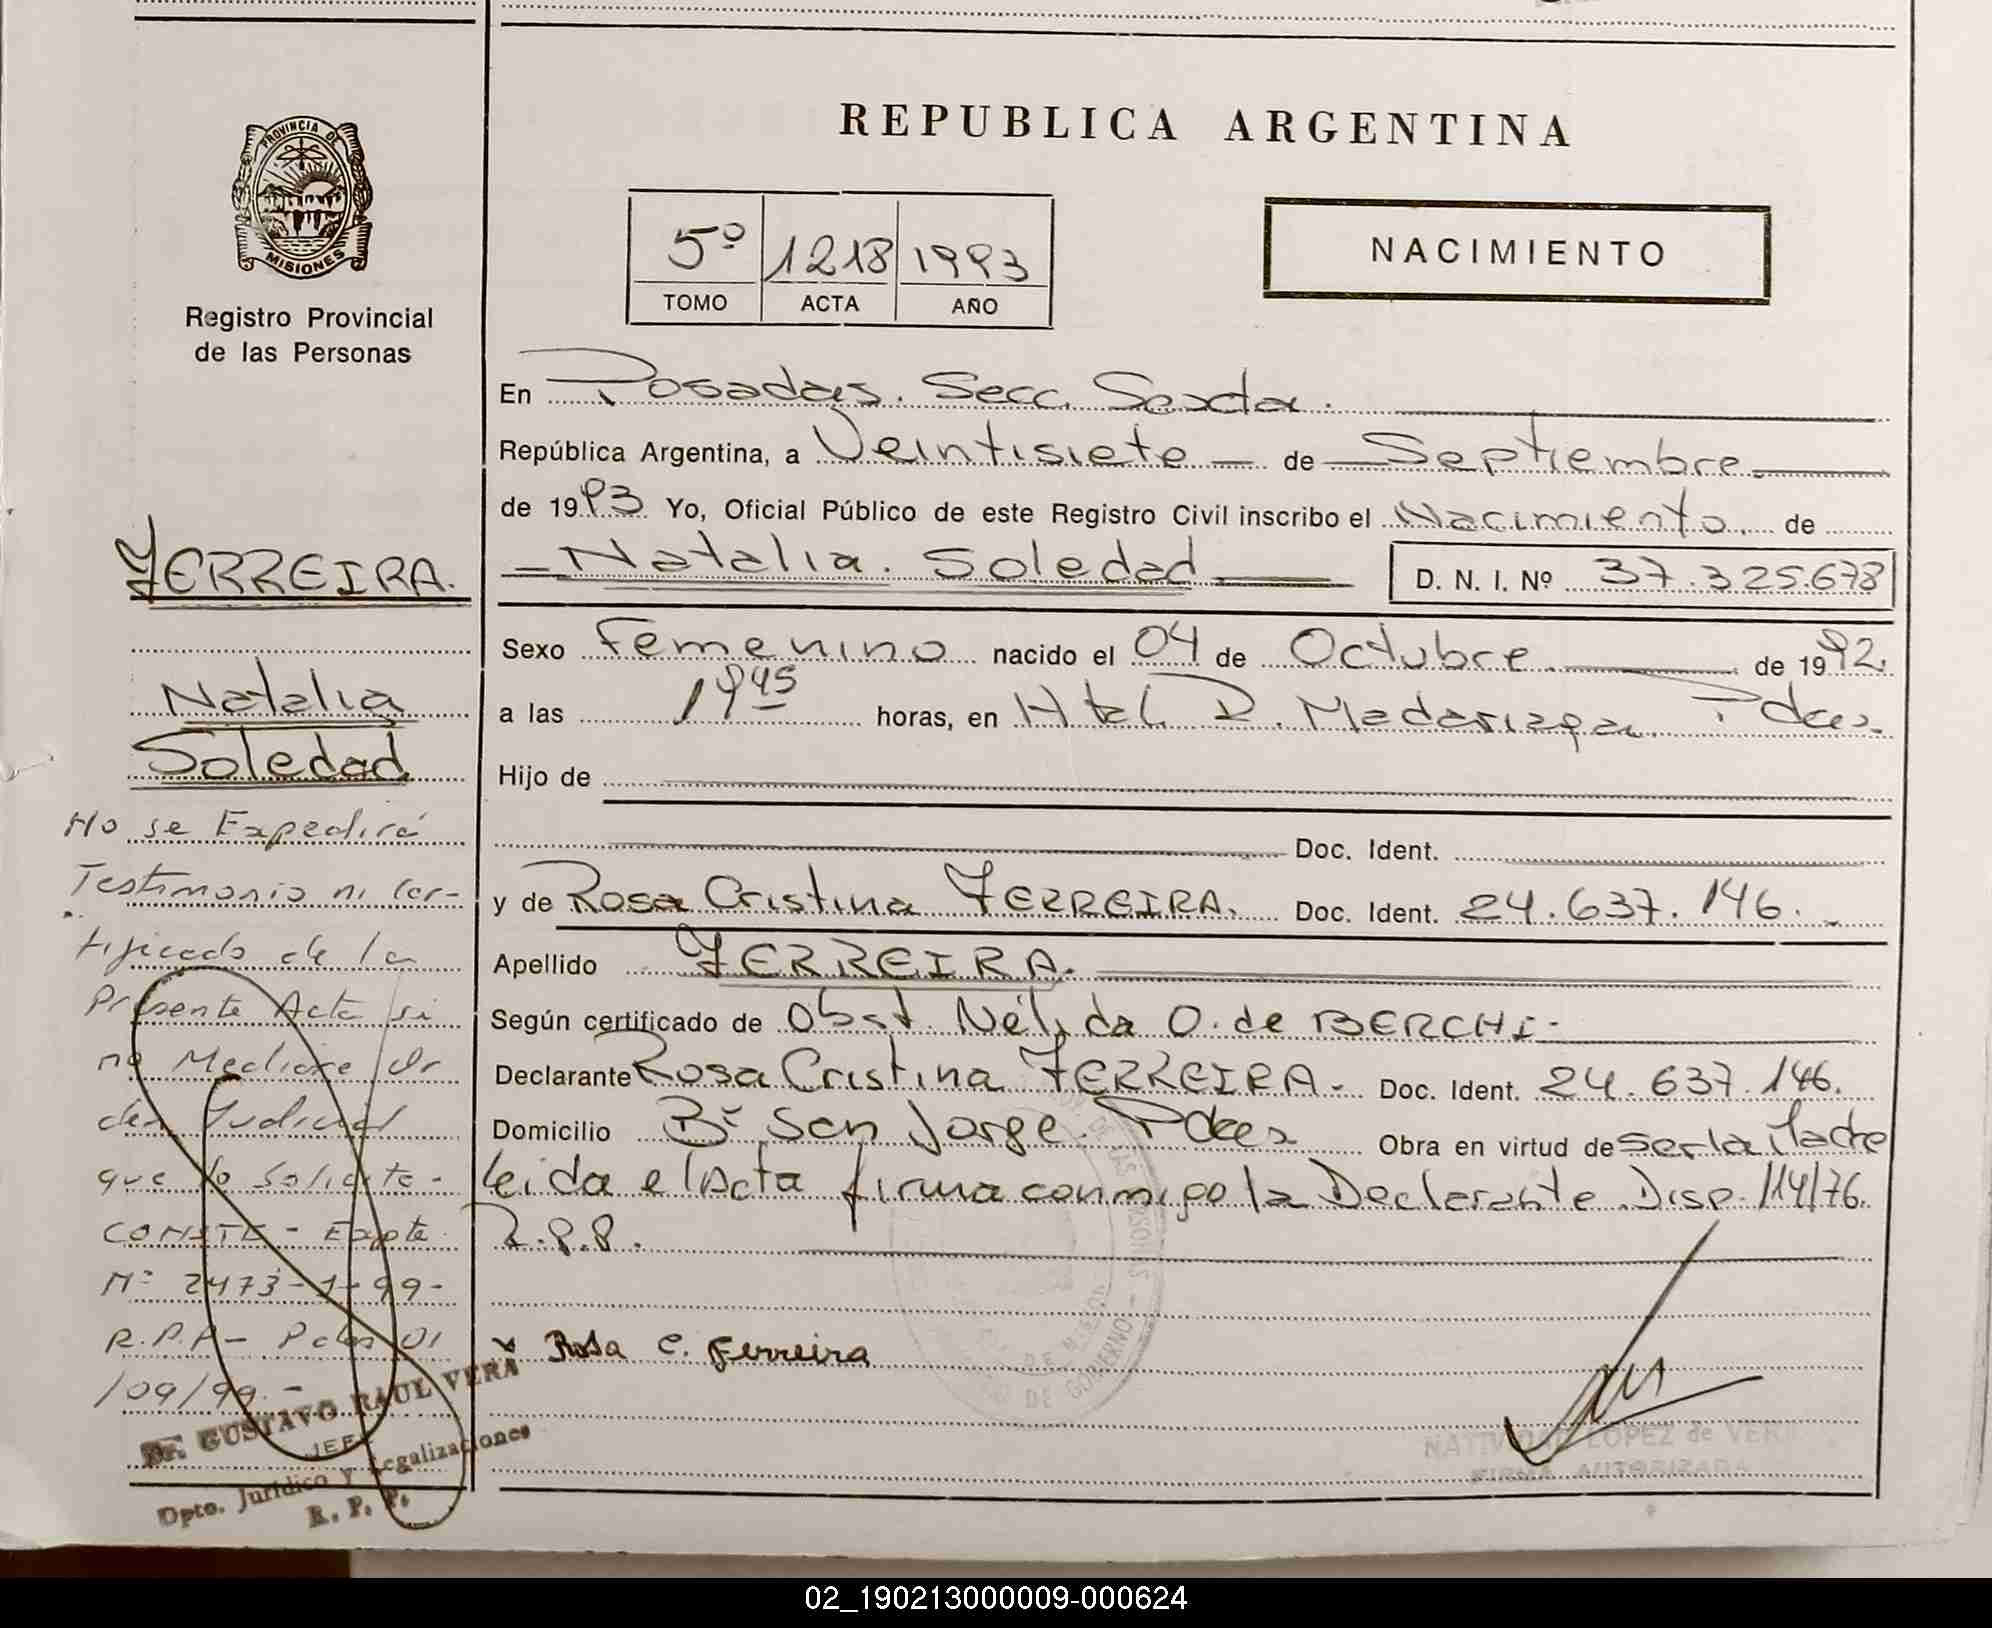 REPUBLICA ARGENTINA
PROVINCIA DE
MISIONES
Registro Provincial
de las Personas
5º 1218 1993
TOMO ACTA AÑO
NACIMIENTO
En Posadas. Secc. Sexta.
República Argentina, a Veintisiete de Septiembre
de 1993 Yo, Oficial Público de este Registro Civil inscribo el Nacimiento de
Natalia Soledad D. N. I. Nº 37.325.678
Sexo Femenino nacido el 04 de Octubre de 1992.
a las 19 45 horas, en Htal. R. Madariaga Pdas
Hijo de
Doc. Ident.
y de Rosa Cristina FERREIRA. Doc. Ident. 24.637.146.
Apellido FERREIRA.
Según certificado de Obst. Nélida O. de BERCHI-
Declarante Rosa Cristina FERREIRA. Doc. Ident. 24.637.146.
Domicilio Bº San Jorge. Pdas Obra en virtud de ser la Madre
Leida el Acta firma conmigo la Declarante Disp. 114/76.
R.P.P.
Rosa C. Ferreira
NATIVIDAD LOPEZ de VERA
FIRMA AUTORIZADA
FERREIRA.
Natalia
Soledad
No se Expedirá
Testimonio ni Cer-
tificado de la
Presente Acta si
no Mediare Or
den Judicial
que lo solicite-
CONSTE - Expte
Nº 2473-1-99-
R.P.P- Pdas 01
/09/99.-
Dr. GUSTAVO RAUL VERA
JEFE
Dpto. Jurídico y Legalizaciones
R. P. P.
02_190213000009-000624